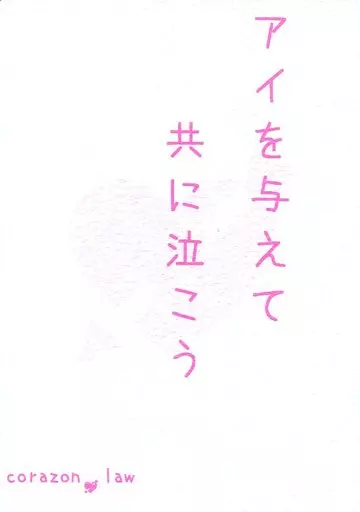 アイを与えて
共に泣こう
corazon law